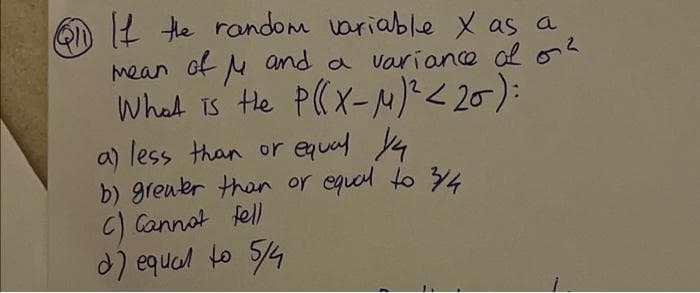 Q11) If the random variable X as a
mean of μ and a variance of σ²
What is the P((X-μ)²<2σ):
a) less than or equal 1/4
b) greater than or equal to 3/4
c) Cannot tell
d) equal to 5/4